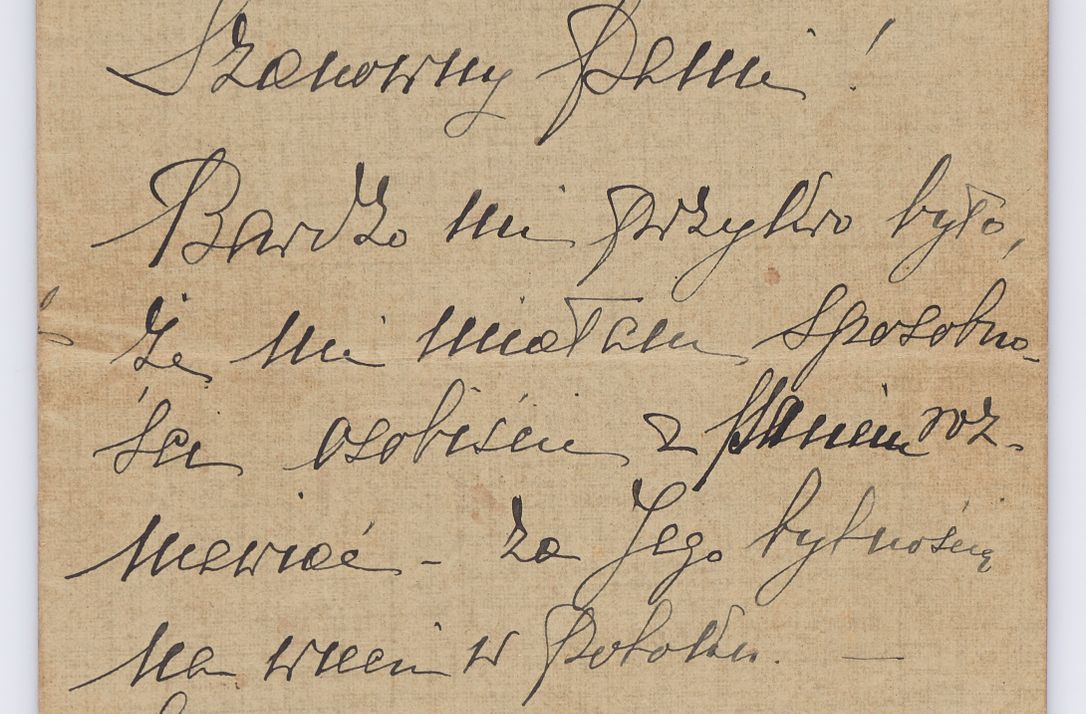 Szanowny Panie!
Bardzo mi przykro było,
że nie miałam sposobno-
ści osobiście z Panem roz-
mawiać - za Jego bytnością
na wieci w Potoku. —